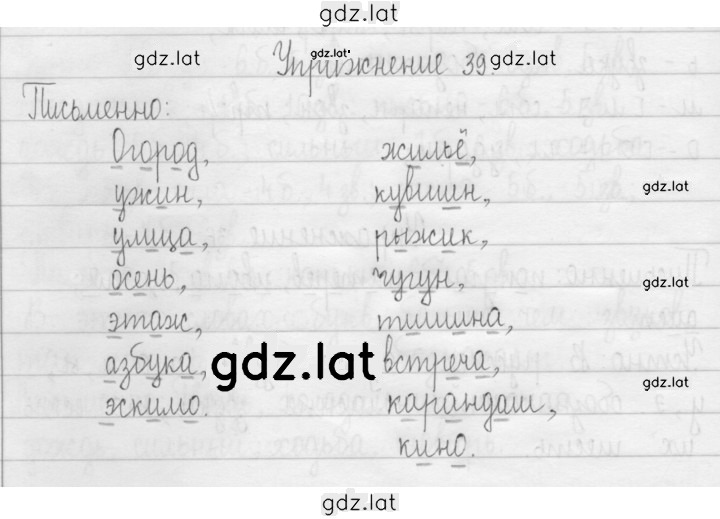 gdz.lat
gdz.lat
gdz.lat
gdz.lat
Упражнение 39.
Письменно:
Огород,
ужин,
улица,
осень,
этаж,
азбука,
эскимо.
жильё,
кувшин,
рыжик,
чугун,
тишина,
встреча,
карандаш,
кино.
gdz.lat
gdz.lat
gdz.lat
gdz.lat
gdz.lat